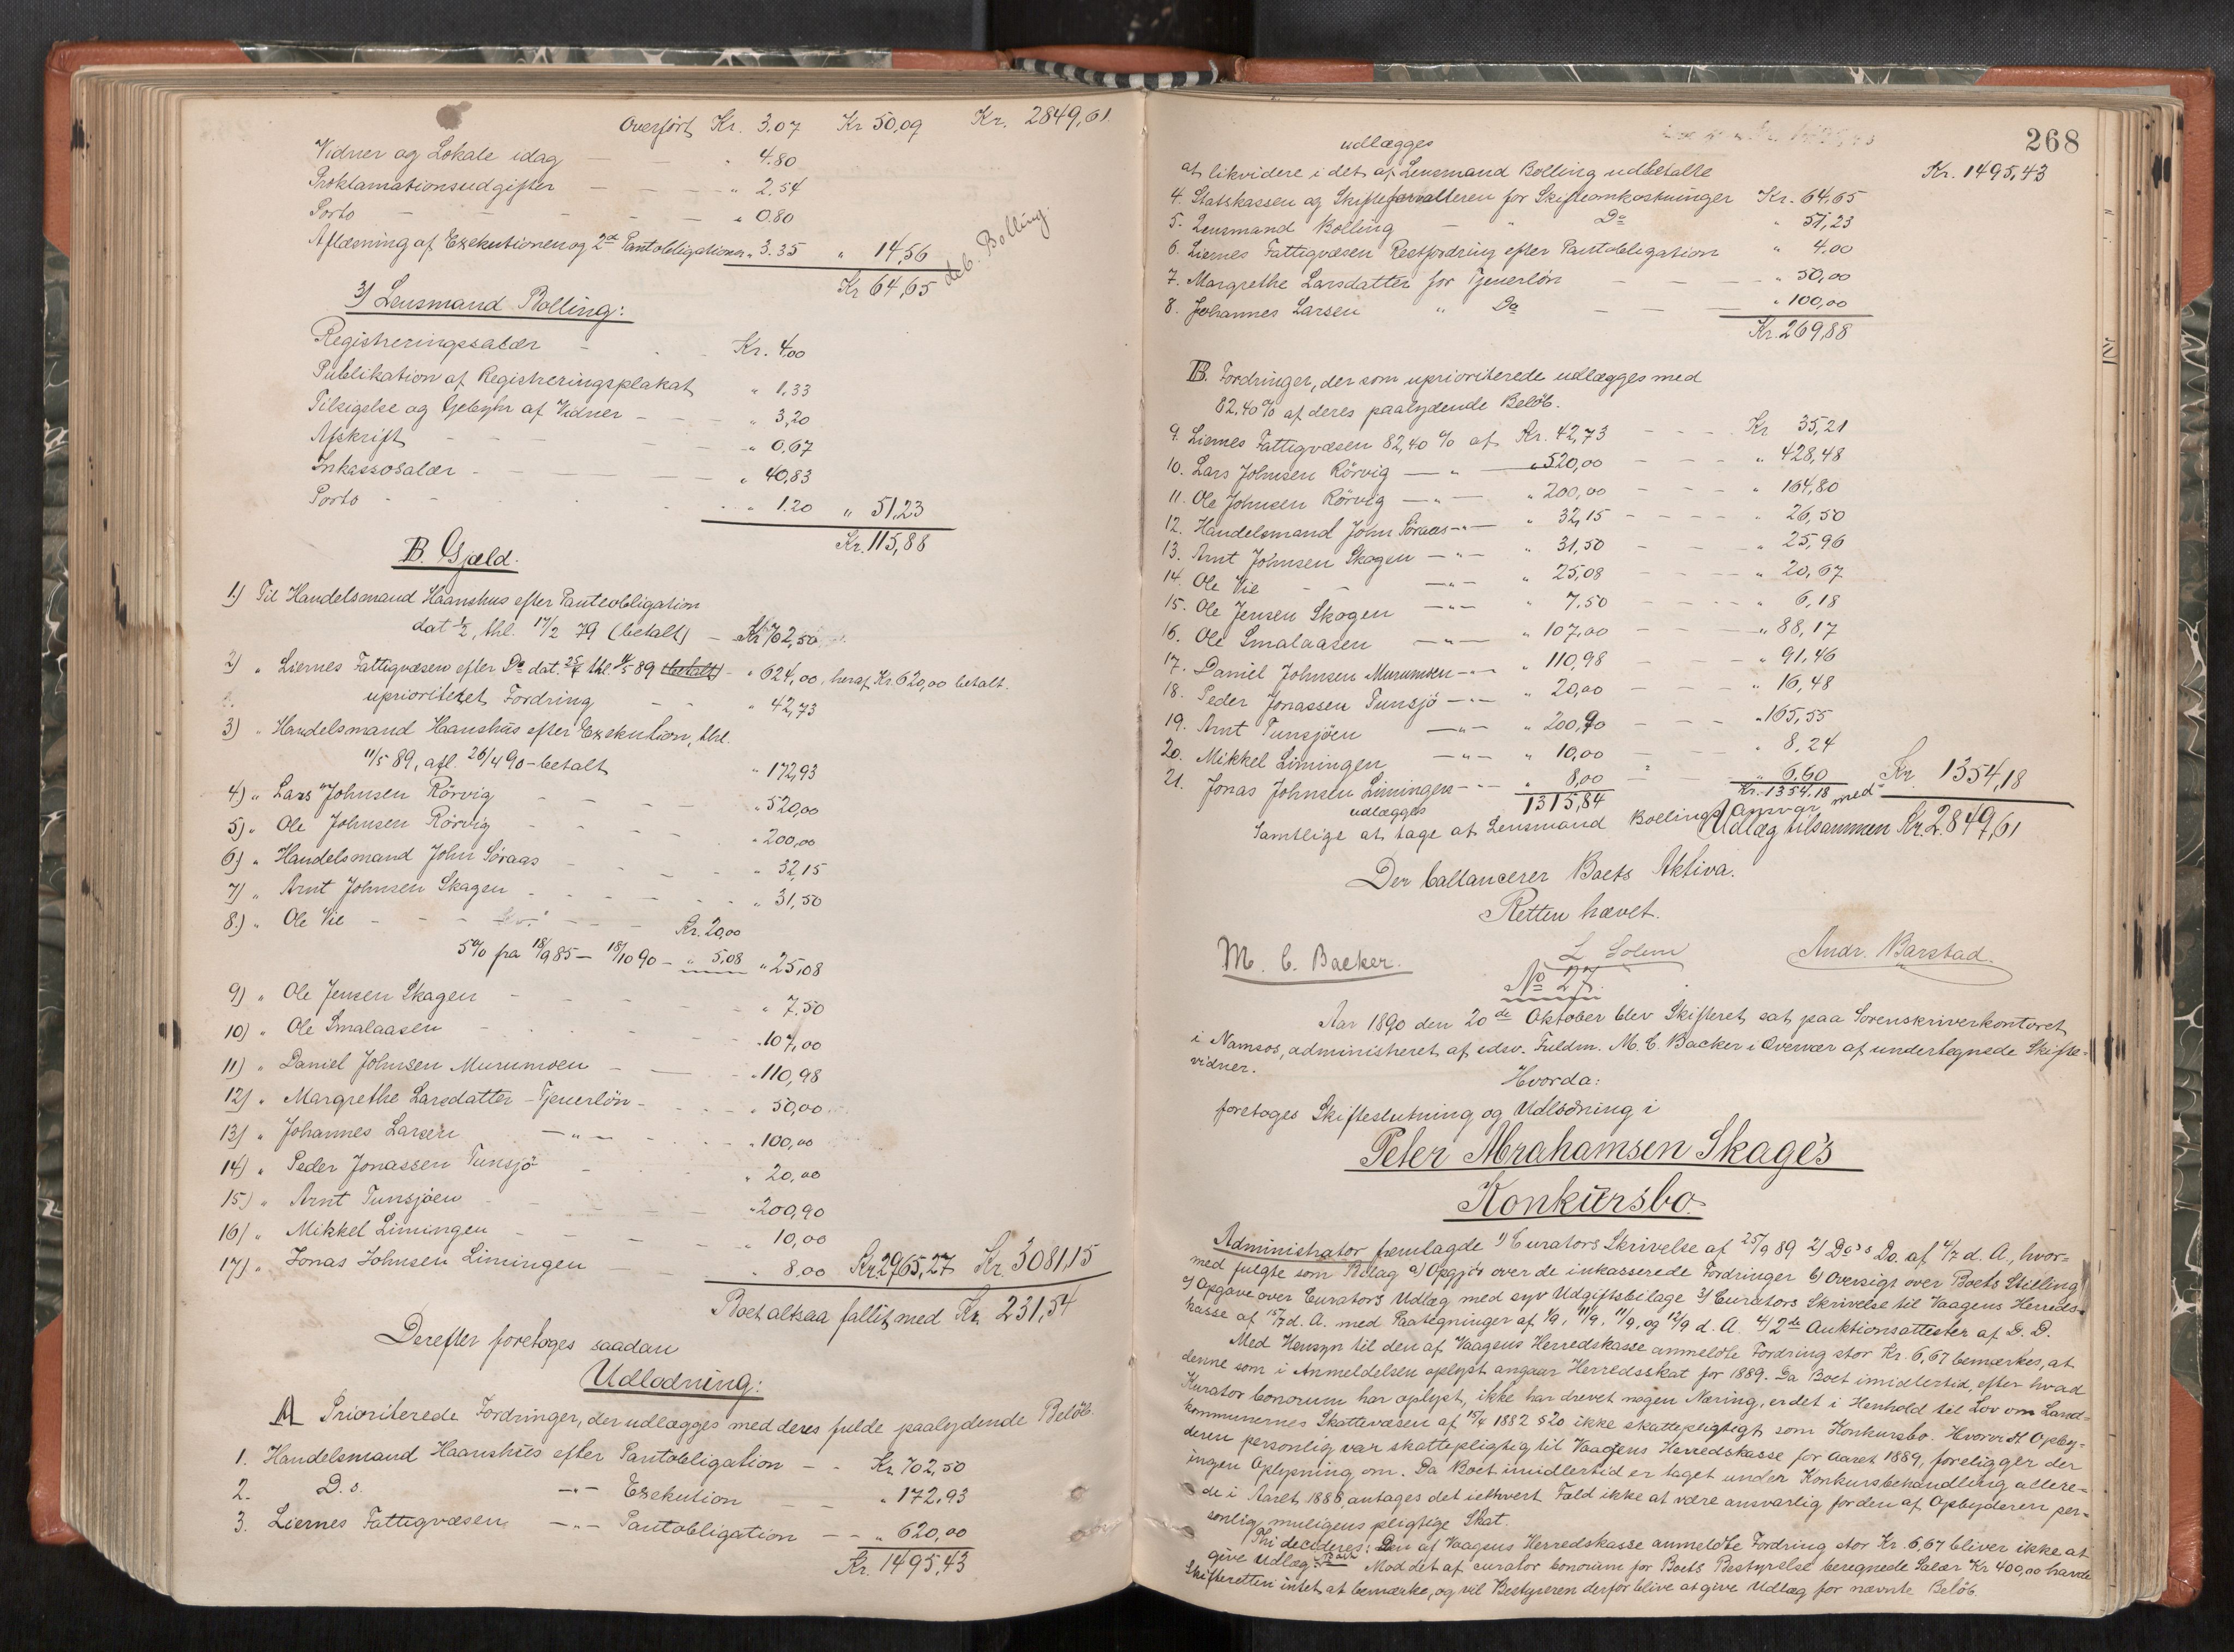 Overført Kr. 3.07 Kr 50,09 Kr. 2849,61.
Vidner og Lokale idag — — " 4.80
Proklamationsudgifter — — — " 2.54
Porto — — — — " 0.80
Aflæsning af Exekutionen og 2de Pantobligationer " 3.35 " 14,56
Kr 64,65 deb. Bolling.
3) Lensmand Bolling:
Registreringssalær - - Kr. 4,00
Publikation af Registreringsplakat " 1,33
Tilsigelse og Gebyhr af Vidner - - " 3,20
Afskrift - - - - " 0,67
Inkassosalær - - - " 40,83
Porto - - - " 1.20 " 51,23
Kr. 115,88
B. Gjæld.
1) Til Handelsmand Haanshus efter Panteobligation
dat 1/2, thl. 17/2 79 (betalt) - Kr 702,50
2) " Liernes Fattigvæsen efter Do dat. 25/4 thl. 11/5 89 (betalt) - " 624,00, heraf Kr. 620,00 betalt.
uprioriteret Fordring - - " 42,73
3) " Handelsmand Haanshus efter Exekution, thl.
11/5 89, afl. 26/4 90 - betalt " 172,93
4) " Lars Johnsen Rörvig - - - " 520,00
5) " Ole Johnsen Rörvig - - - " 200,00
6) " Handelsmand John Söraas - - - " 32,15
7) " Arnt Johnsen Skagen - - - " 31,50
8.) " Ole Vie - - - Kr. 20,00
5% fra 18/9 85 - 18/10 90 - " 5,08 " 25,08
9) " Ole Jensen Skagen - - - " 7.50
10) " Ole Smalaasen - - - " 107,00
11) " Daniel Johnsen Murumoen - - " 110,98
12) " Margrethe Larsdatter - Tjenerlön - - " 50,00
13) " Johannes Larsen — " — - - " 100,00
14) " Peder Jonassen Tunsjö - - " 20,00
15) " Arnt Tunsjöen - - " 200,90
16) " Mikkel Limingen - - - " 10,00
17) " Jonas Johnsen Limingen - " 8,00 Kr. 2965,27 Kr. 3081,15
Boet altsaa fallit med Kr. 231,54
Derefter foretoges saadan
Udlodning:
A Prioriterede Fordringer, der udlægges med deres fulde paalydende Belöb.
1. Handelsmand Haanshus efter Pantobligation - - Kr. 702,50
2. D.o. — " — Exekution - - " 172,93
3. Liernes Fattigvæsen — " — Pantobligation - - " 620,00
Kr. 1495,43
268
udlægges
at likvidere i det af Lensmand Bolling udbetalte Kr. 1495,43
4. Statskassen og Skifteforvalteren for Skifteomkostninger Kr. 64,65
5. Lensmand Bolling - " Do " 51,23
6. Liernes Fattigvæsen Restfordring efter Pantobligation " 4,00
7. Margrethe Larsdatter for Tjenerlön - - " 50,00
8. Johannes Larsen " Do - - " 100,00
Kr. 269,88
B. Fordringer, der som uprioriterede udlægges med
82,40% af deres paalydende Belöb.
9. Liernes Fattigvæsen 82,40 % af Kr. 42,73 - - - Kr 35,21
10. Lars Johnsen Rörvig — " — " 520,00 - - - " 428,48
11. Ole Johnsen Rörvig — " — " 200,00 - - - " 164,80
12. Handelsmand John Söraas — " — " 32,15 - - - " 26,50
13. Arnt Johnsen Skagen — " — " 31,50 - - " 25,96
14. Ole Vie - - — " — " 25,08 - - - " 20,67
15. Ole Jensen Skogen — " — " 7.50 - - - " 6,18
16. Ole Smalaasen — " — " 107,00 - - " 88,17
17. Daniel Johnsen Murumoen — " — " 110,98 - - " 91,46
18. Peder Jonassen Tunsjö — " — " 20,00 - - - " 16,48
19. Arnt Tunsjöen — " — " 200,90 - - - " 165,55
20. Mikkel Limingen — " — " 10,00 - - - " 8,24
21. Jonas Johnsen Limingen — " — " 8,00 - - " 6.60 Kr. 1354,18
1315,84 Kr. 1354.18
udlægges
Samtlige at tage af Lensmand Bollings Ansvar med
Udlæg tilsammen Kr. 2849,61
Der ballancerer Boets Aktiva.
Retten hævet.
M. C. Backer. L Solem Andr. Barstad.
No 27.
Aar 1890 den 20de Oktober blev Skifteret sat paa Sorenskriverkontoret
i Namsos, administreret af edsv. Fuldm. M. C. Backer i Overvær af undertegnede Skifte-
vidner.
Hvorda:
foretoges Skifteslutning og Udlodning i
Peter Abrahamsen Skage's
Konkursbo.
Administrator fremlagde 1) Curators Skrivelse af 25/9 89 2) Do's Do. af 4/7 d. A., hvor-
med fulgte som Bilag a) Opgjör over de inkasserede Fordringer b) Oversigt over Boets Stilling
c) Opgave over Curators Udlæg med syv Udgiftsbilage 3) Curators Skrivelse til Vaagens Herreds-
kasse af 15/7 d. A. med Paategninger af 1/9, 11/9, 11/9, og 12/9 d. A. 4) 2de Auktionsattester af D. D.
Med Hensyn til den af Vaagens Herredskasse anmeldte Fordring stor Kr. 6,67 bemærkes, at
denne som i Anmeldelsen oplyst angaar Herredsskat for 1889. Da Boet imidlertid, efter hvad
Kurator bonorum har oplyst, ikke har drevet nogen Næring, er det i Henhold til Lov om Land-
kommunernes Skattevæsen af 15/4 1882 § 20 ikke skattepligtigt som Konkursbo. Hvorvidt Opby-
deren personlig var skattepligtig til Vaagens Herredskasse for Aaret 1889, foreligger der
ingen Oplysning om. Da Boet imidlertid er taget under Konkursbehandling allere-
de i Aaret 1888, antages det iethvert Fald ikke at være ansvarlig for den af Opbyderen per-
sonlig muligens pligtige Skat.
Thi decideres: Den af Vaagens Herredskasse anmeldte Fordring stor Kr. 6,67 bliver ikke at
give Udlæg. Mod det af curator bonorum for Boets Bestyrelse beregnede Salær Kr 400,00 havde
Skifteretten intet at bemærke, og vil Bestyreren derfor blive at give Udlæg for nævnte Belöb.